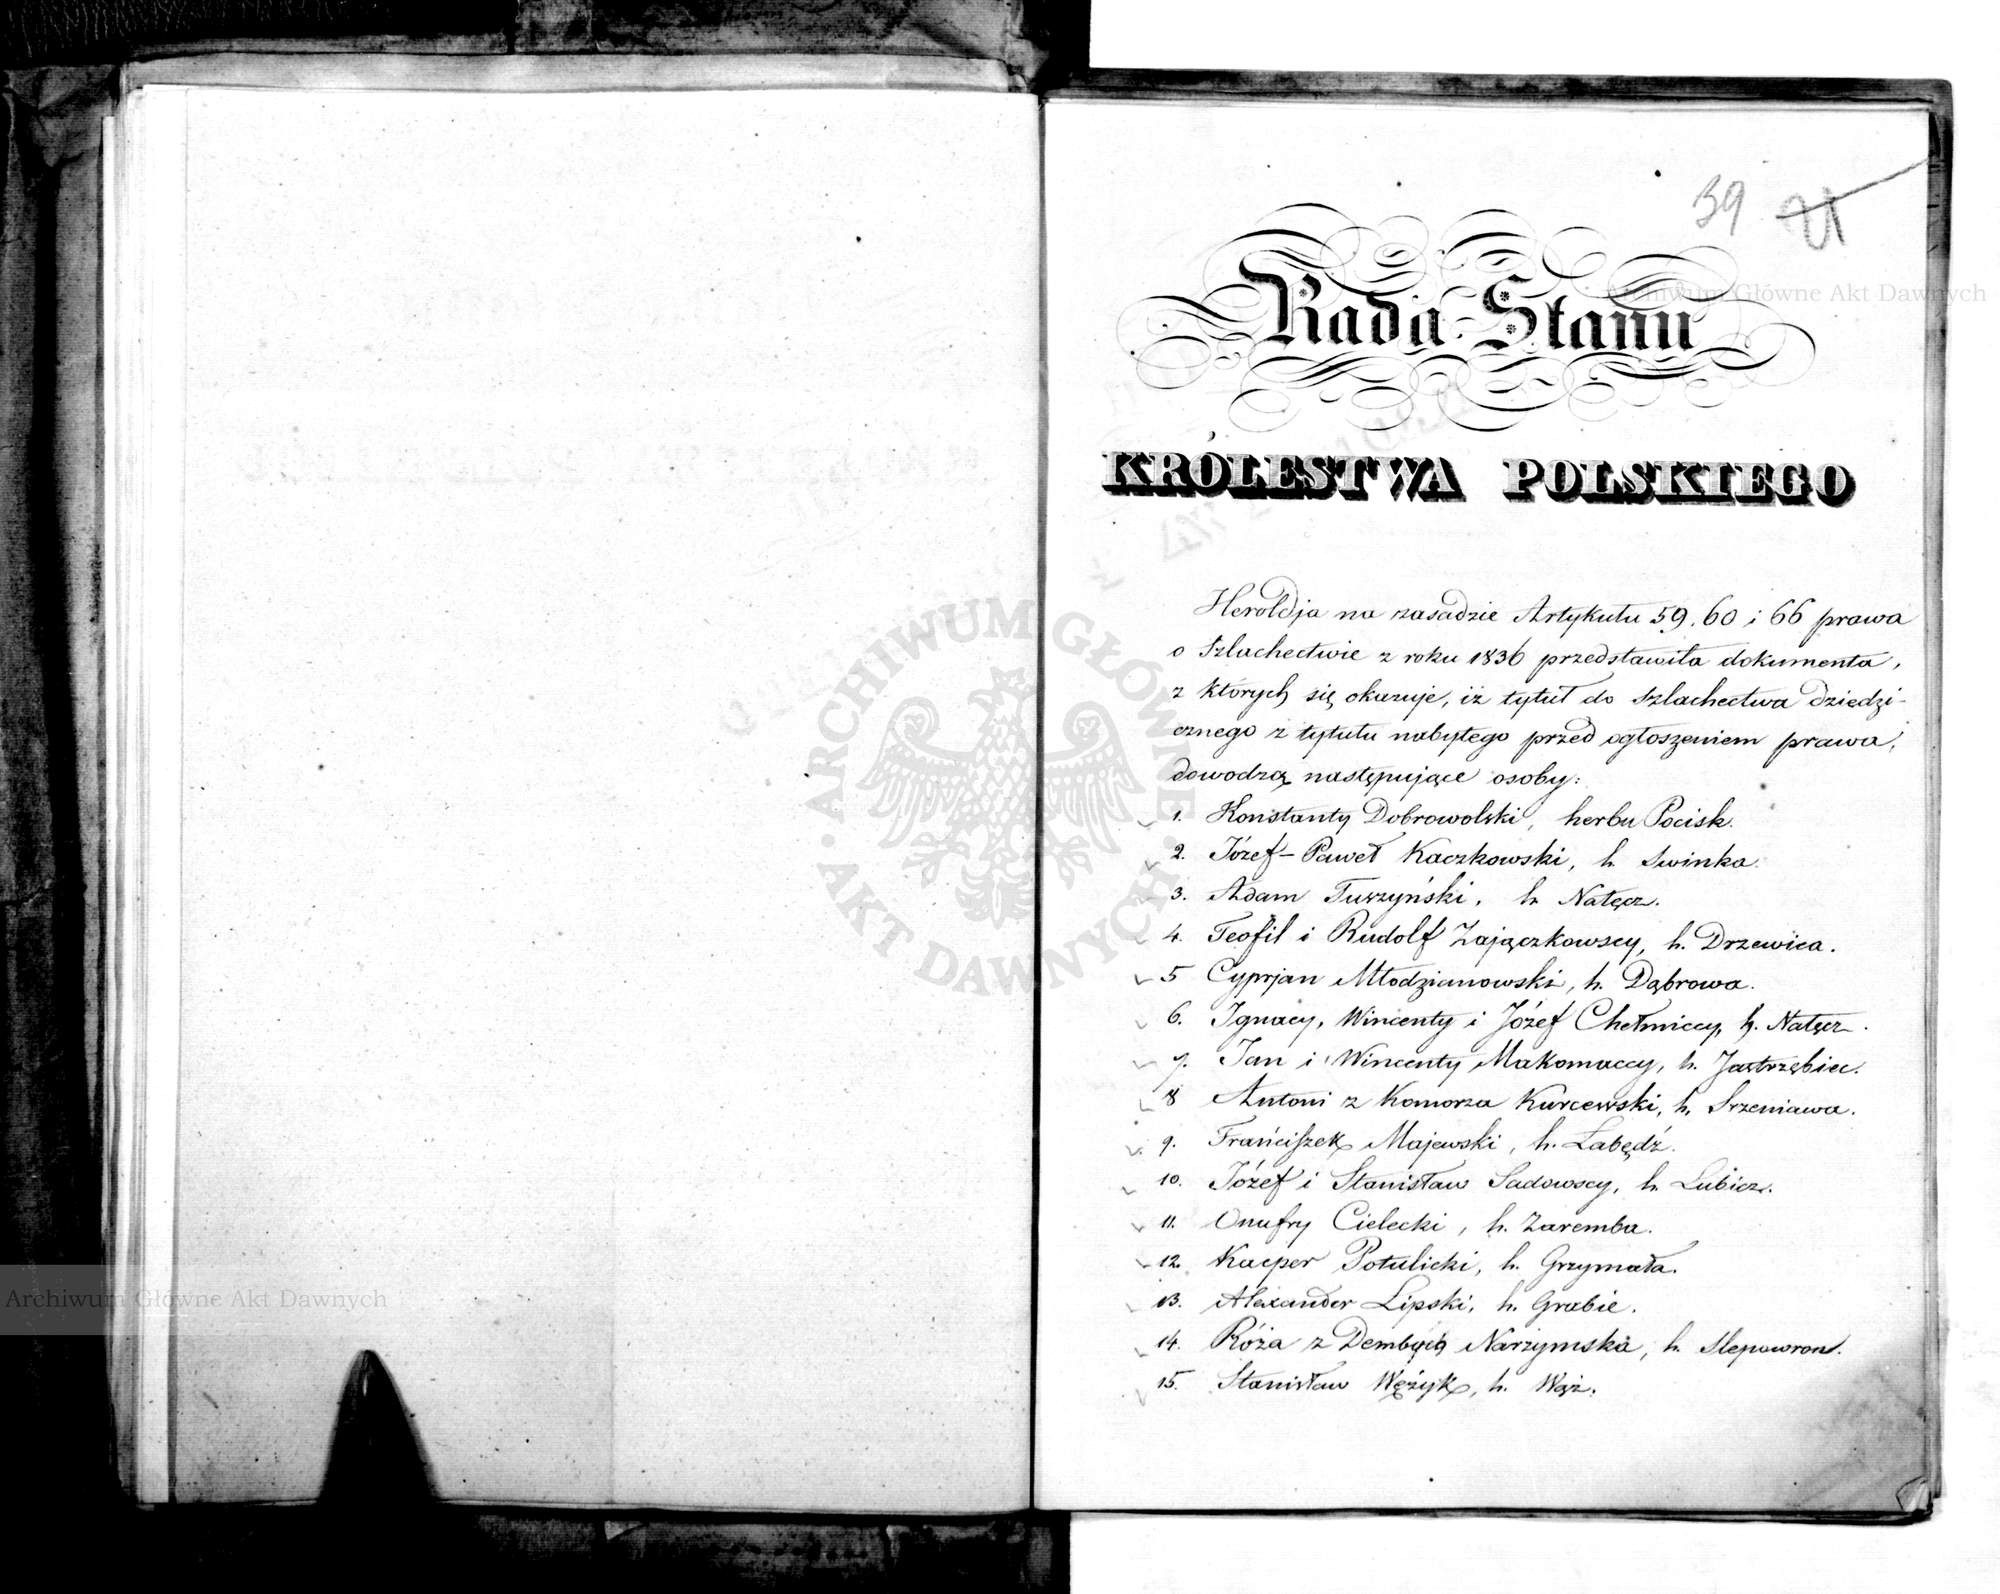 39 21
Rada Stanu
KRÓLESTWA POLSKIEGO
Heroldja na zasadzie Artykułu 59, 60 i 66 prawa
o Szlachectwie z roku 1836 przedstawiła dokumenta,
z których się okazuje, iż tytuł do Szlachectwa dziedzi-
cznego z tytułu nabytego przed ogłoszeniem prawa,
dowodzą następujące osoby:
1. Konstanty Dobrowolski, herbu Pocisk.
2. Józef-Paweł Kaczkowski, h. Swinka.
3. Adam Turzyński, h. Nałęcz.
4. Teofil i Rudolf Zajączkowscy, h. Drzewica.
5 Cyprjan Młodzianowski, h. Dąbrowa.
6. Ignacy, Wincenty i Józef Chełmiccy, h. Nałęcz.
7. Jan i Wincenty Makomaccy, h. Jastrzębiec.
8 Antoni z Komorza Kurcewski, h. Srzeniawa.
9. Franciszek Majewski, h. Łabędź.
10. Józef i Stanisław Sadowscy, h. Lubicz.
11. Onufry Cielecki, h. Zaremba.
12. Kacper Potulicki, h. Grzymała.
13. Alexander Lipski, h. Grabie.
14. Róża z Narzymska, h. Slepowron.
15. Stanisław Wężyk, h. Wąż.
Archiwum Główne Akt Dawnych
Archiwum Główne Akt Dawnych
ARCHIWUM GŁÓWNE · AKT DAWNYCH ·